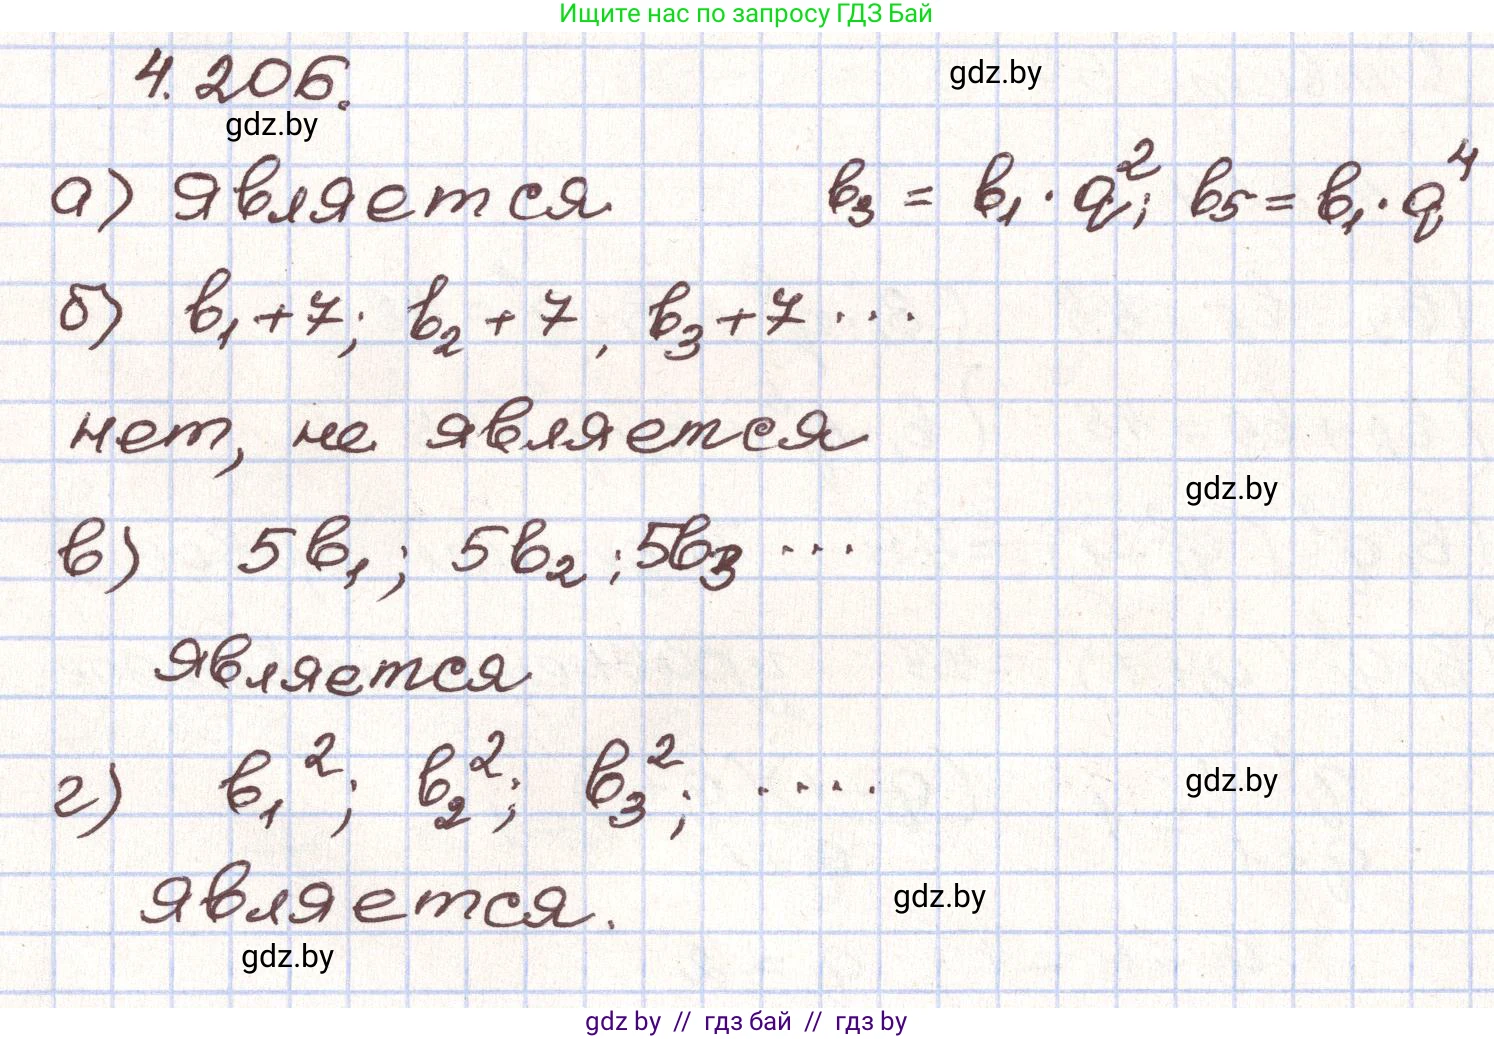 Ищите нас по запросу ГДЗ Бай
4.206.
gdz.by
gdz.by
а) является b₃ = b₁ · q²; b₅ = b₁ · q⁴
б) b₁ + 7; b₂ + 7, b₃ + 7 ...
нет, не является
gdz.by
в) 5b₁; 5b₂; 5b₃ ...
является
г) b₁²; b₂²; b₃²; ....
gdz.by
является.
gdz.by
gdz.by
gdz by // гдз бай // гдз by